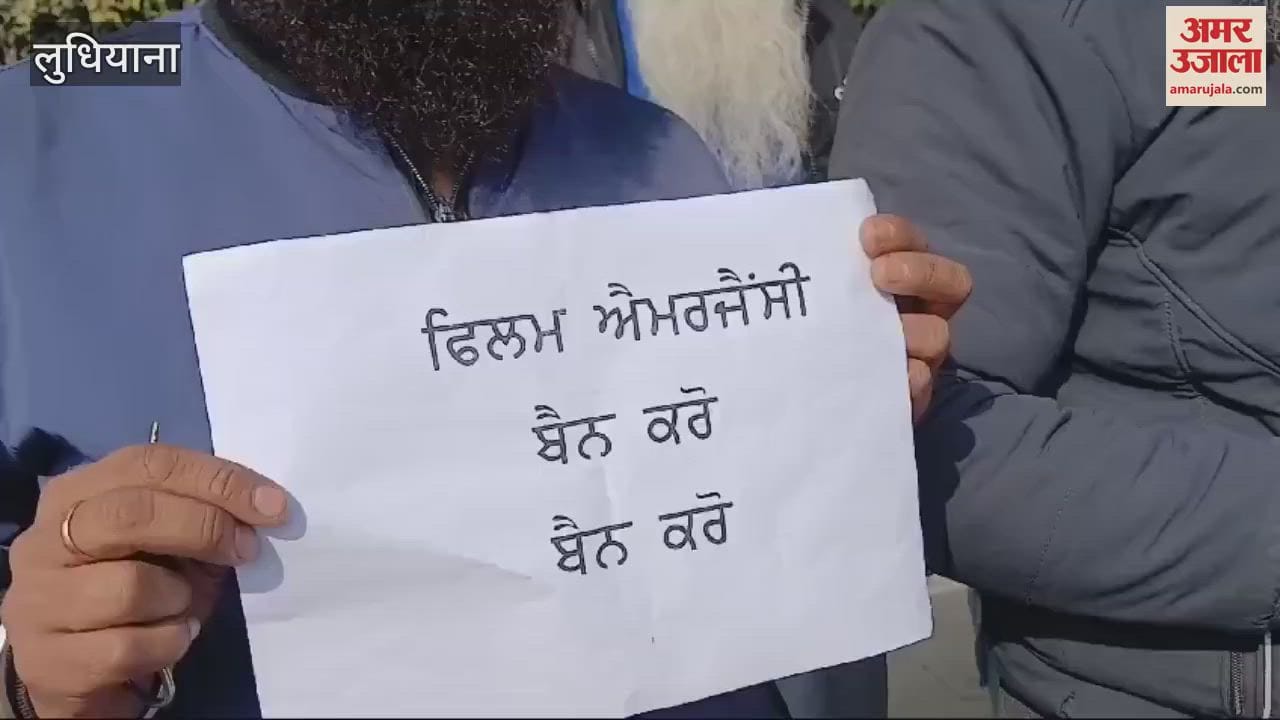 लुधियाना
अमर
उजाला
amarujala.com
ਫਿਲਮ ਐਮਰਜੈਂਸੀ
ਬੈਨ ਕਰੋ
ਬੈਨ ਕਰੋ